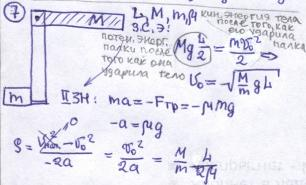 7
M
m
L, M, m, μ
З.С.Э:
потен. энерг.
палки после
того как она
ударила тело
кин. энергия тела
после того, как
его ударила
палка
Mg L/2 = mv₀²/2 ⇒
v₀ = √(M/m gL)
II ЗН: ma = -Fтр = -μmg
-a = μg
S = (v² - v₀²)/-2a = v₀²/2a = M/m L/2μ
0